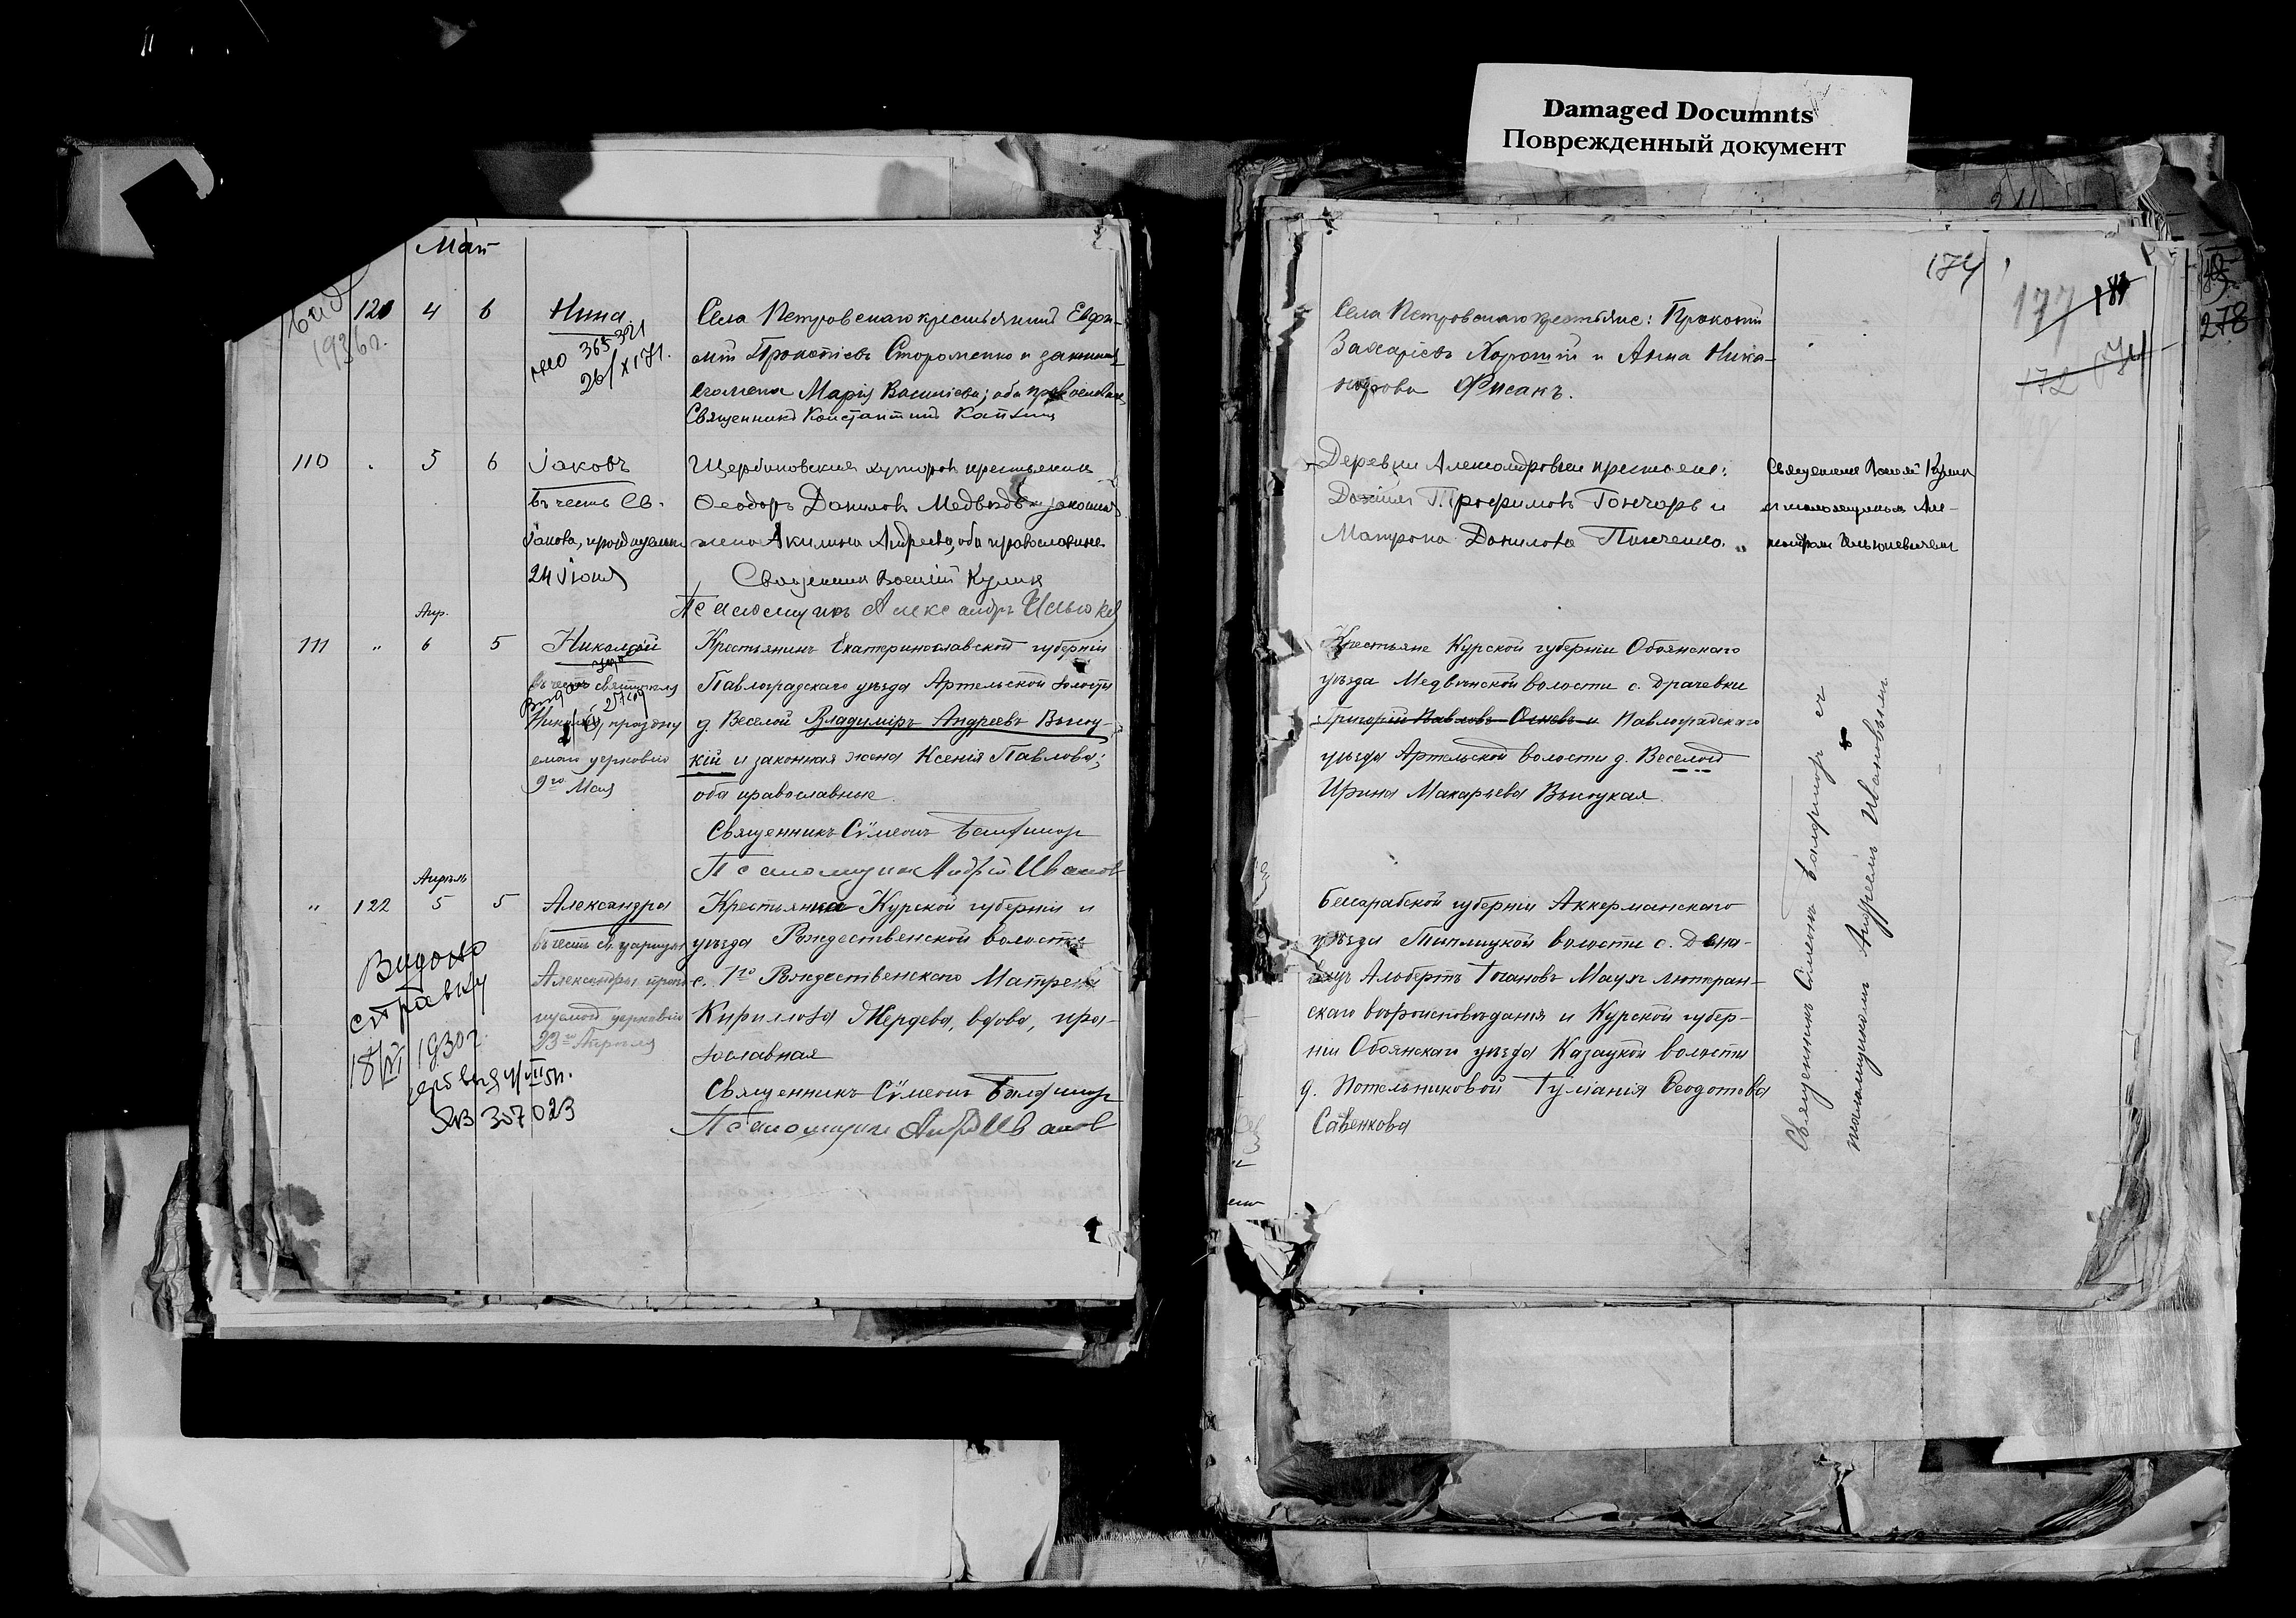 Damaged Documnts
Поврежденный документ
Май
1936 г.
121 4 6 Нина
365321
26/XI 71.
Села Петровскаго крестьянинъ Евфи-
мій Прокопіевъ Стороженко и законная
его жена Марія Василіева; оба православные
Священникъ Константинъ
110 5 6 Іаковъ
въ честь Св.
Іакова, празднуемаго
24 Іюня
Щербиновскихъ хуторовъ крестьянинъ
Ѳеодоръ Даниловъ Медвѣдь и законная
жена Акилина Андреева, оба православные
Священникъ Василій Кулик
Псаломщикъ Александръ
Апр.
111 „ 6 5 Николай
въ честь святителя
Николая, праздну
емаго церковію
9го Мая
Крестьянинъ Екатеринославской губерніи
Павлоградскаго уѣзда Артельской волости
д. Веселой Владуміръ Андреевъ Высоц-
кій и законная жена Ксенія Павлова;
оба православные.
Священникъ Сѵмеонъ
Псаломщикъ Андрей Иванов
Апрѣль
„ 122 5 5 Александра
въ честь св. царицы
Александры празд
нуемой церковію
23го Апрѣля
Видано
справку
18/VI 1930 г.
307023
Крестьянка Курской губерніи и
уѣзда Рождественской волости
с. 1го Рождественскаго Матрена
Кириллова Жердева, вдова, пра-
вославная
Священникъ Сѵмеонъ
Псаломщикъ Андрей Иванов
174
177
172
278
Села Петровскаго крестьяне: Прокопій
Захаріевъ Хорошій и Анна Ника-
норова Фисанъ.
Деревни Александровки крестьяне:
Даніилъ Трофимовъ Гончаръ и
Матрона Данилова Панченко.
Священникъ Василій Кулик
съ псаломщикомъ Але-
ксандромъ
Крестьяне Курской губерніи Обоянскаго
уѣзда Медвѣнской волости с. Драчевки
Григорій Павловъ Огневъ и Павлоградскаго
уѣзда Артельской волости д. Веселой
Ирина Макарьева Высоцкая.
Бессарабской губерніи Аккерманскаго
уѣзда волости с. Дена-
вицъ Альбертъ Іогановъ Маухъ лютеран-
скаго вѣроисповѣданія и Курской губер-
ніи Обоянскаго уѣзда Казацкой волости
д. Котельниковой Гликерія Ѳеодотова
Савенкова
Священникъ Сѵмеонъ съ
псаломщикомъ Андреемъ Ивановымъ